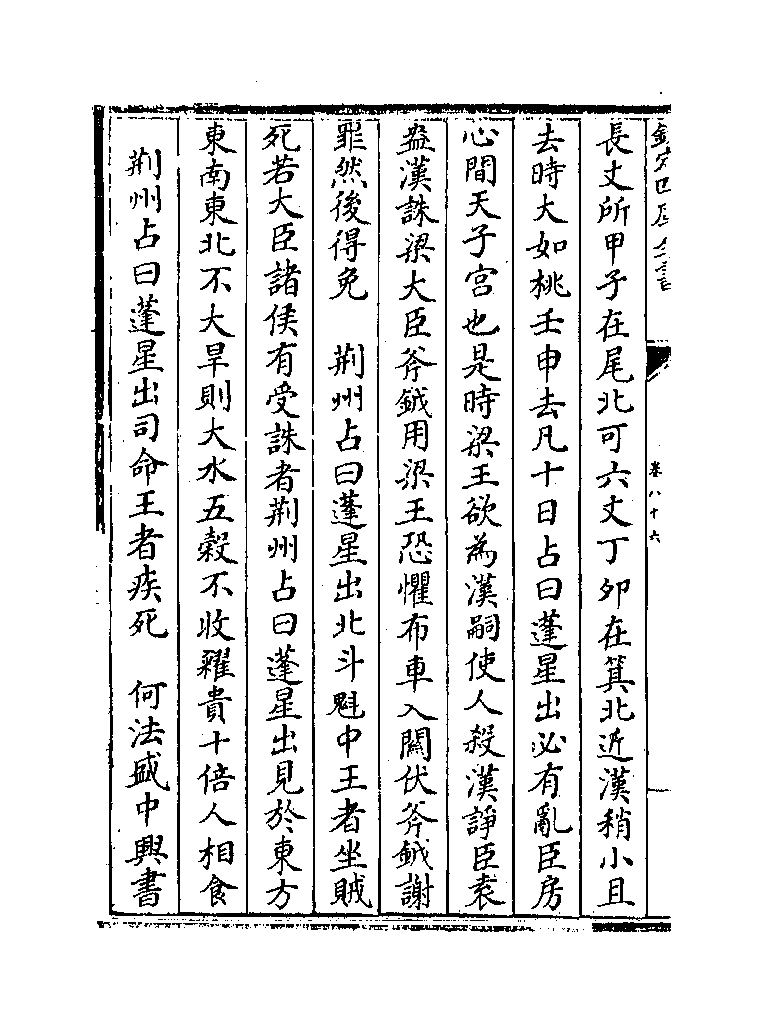 欽定四庫全書
卷八十六
長丈所甲子在尾北可六丈丁夘在箕北近漢稍小且
去時大如桃壬申去凡十日占曰蓬星出必有亂臣房
心間天子宮也是時梁王欲為漢嗣使人殺漢諍臣袁
盎漢誅梁大臣斧鉞用梁王恐懼布車入闗伏斧鉞謝
罪然後得免　荆州占曰蓬星出北斗魁中王者坐賊
死若大臣諸侯有受誅者荆州占曰蓬星出見於東方
東南東北不大旱則大水五穀不收糴貴十倍人相食
荆州占曰蓬星出司命王者疾死　何法盛中興書